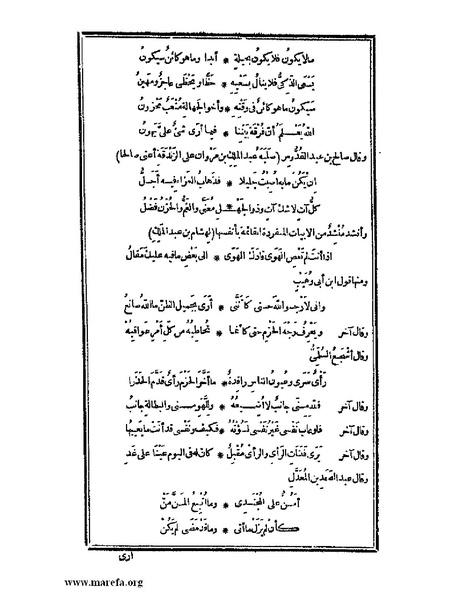 مالا يكون فلا يكون بحيلة * أبدا وما هو كائن سيكون
يسعى الذكى فلا ينال بسعيه * حظا ويحظى عاجز ومهين
سيكون ما هو كائن فى وقته * وأخو الجهالة متعب محزون
الله يعلم أن فرقة بيننا * فيما أرى شئ على يهون
وقال صالح بن عبد القدوس (صلبه عبد الملك بن مروان على الزندقة أعنى صالحا)
ان يكن ما به أصبت جليلا * فذهاب العزاء فيه أجل
كل آت لا شك آت وذو الجهل * معنى والغم والحزن فضل
وأنشد منشد من الابيات المنفردة القائمة بأنفسها (لهشام بن عبد الملك)
اذا أنت لم تعص الهوى قادك الهوى * الى بعض ما فيه عليك مقال
ومنها قول ابن أبى وهيب
وانى لأرجو الله حتى كأننى * أرى بجميل الظن ما الله صانع
وقال آخر ويعرف وجه الحزم حتى كأنما * تخاطبه من كل أمر عواقبه
وقال أشجع السلمى
رأى سرى وعيون الناس راقدة * ما أخر الحزم رأى قدم الحذرا
وقال آخر فلله منى جانب لا أضيعه * وللهو منى والبطالة جانب
وقال آخر فلو عاب نفسى غير نفسى لسؤته * فكيف ونفسى قد أتت ما يعيبها
وقال آخر يرى فلتات الرأى والرأى مقبل * كأن له فى اليوم عينا على غد
وقال عبد الصمد بن المعذل
أمن على المجتدى * وما أتبع المن من
كأن لم يزل ما أتى * وما قد مضى لم يكن
ارى
www.marefa.org